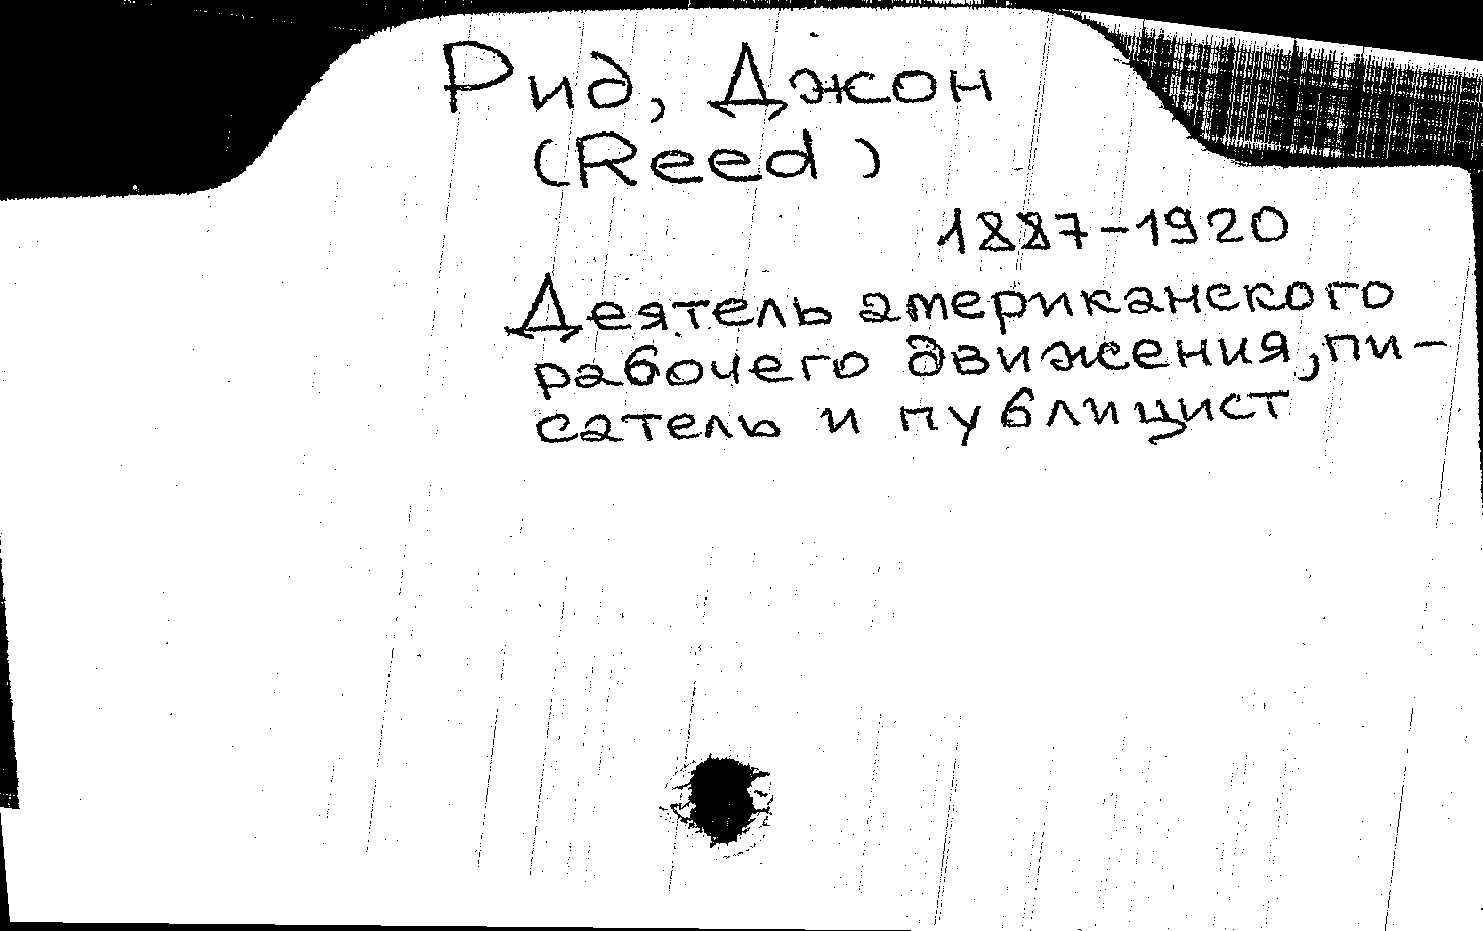 Рид, Джон
(Reed)
1887-1920
Деятель американского
рабочего движения, пи-
сатель и публицист